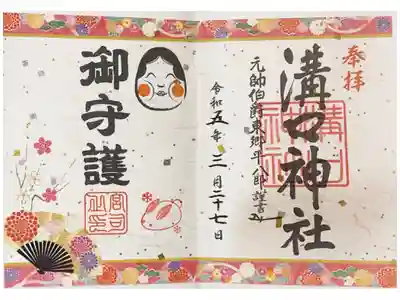 奉拝
溝口神社
元帥伯爵東郷平八郎謹書
令和五年三月二十七日
御守護
溝口神社